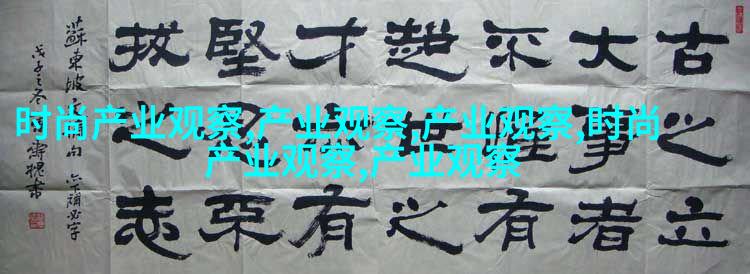 古之立
大事者
不惟有
超世之
才亦有
堅忍不
拔之志
蘇東坡
戊子之冬
时尚产业观察,产业观察,产业观察,时尚
产业观察,产业观察